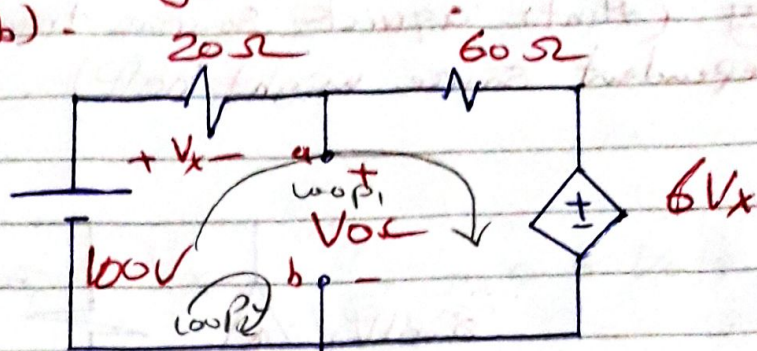 b).
20Ω 60Ω
+ Vx - a +
loop1
Voc + - 6Vx
100V b -
loop2